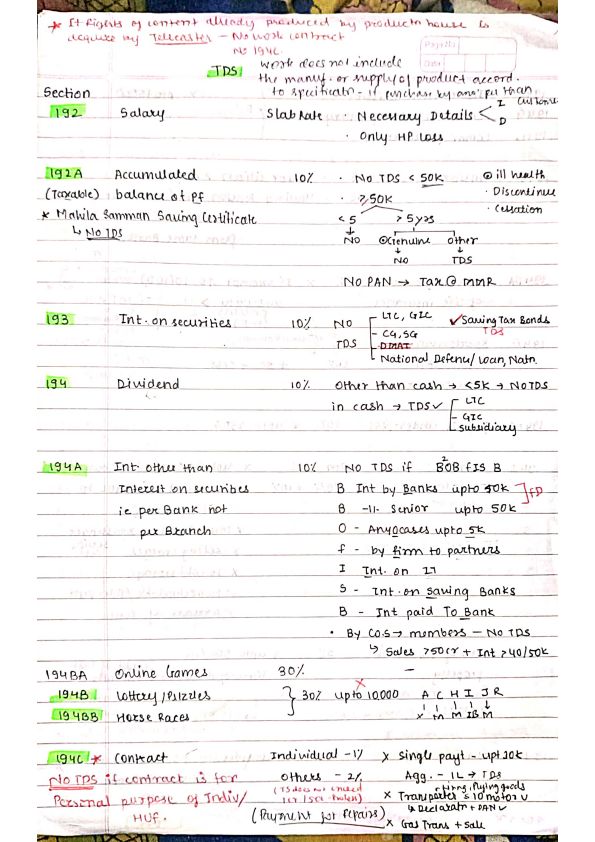 * If Rights of content already produced by production house is
acquire by Telecaster - No work contract
No 194C.
TDS
work does not include
the manuf. or supply of product accord.
to specificatn - if purchase by any per than customer
Section
192 Salary Slab Rate · Necessary Details < I
D
· Only HP Loss
192A Accumulated 10% · No TDS < 50K ⊙ ill health
(Taxable) balance of PF · ≥50K · Discontinue
* Mahila Samman Saving Certificate <5 >5yrs · Cessation
↳ No TDS NO ⊙Genuine other
NO TDS
NO PAN → Tax @ MMR
193 Int. on securities 10% NO LIC, GIC ✓Saving Tax Bonds
TDS - CG, SG TDS
- DMAT
National Defence/ Loan, Natn.
194 Dividend 10% Other than cash → <5K → NOTDS
in cash → TDS✓ LIC
- GIC
subsidiary
194A Int other than 10% NO TDS if B²OB FIS B
Interest on securities B Int by Banks upto 40K ] FD
ie per Bank not B -11- Senior upto 50K
per Branch O - Any Ocases upto 5K
F - by firm to partners
I Int. on IT
S - Int. on Saving Banks
B - Int paid To Bank
· By COS → members - No TDS
↳ Sales >50cr + Int >40/50K
194BA Online Games 30% -
194B Lottery/Puzzles } 30% upto 10,000 A C H I J R
194BB Horse Races x M M IB M
194C * Contract Individual - 1% x Single payt - upt 30k
No TDS if contract is for Others - 2% Agg. - 1L → TDS
Personal purpose of Indiv/ x Transporter = 10 motor v
HUF. ↳ Declaratn + PAN ✓
(Payment for Repairs) x Gas Trans + Sale